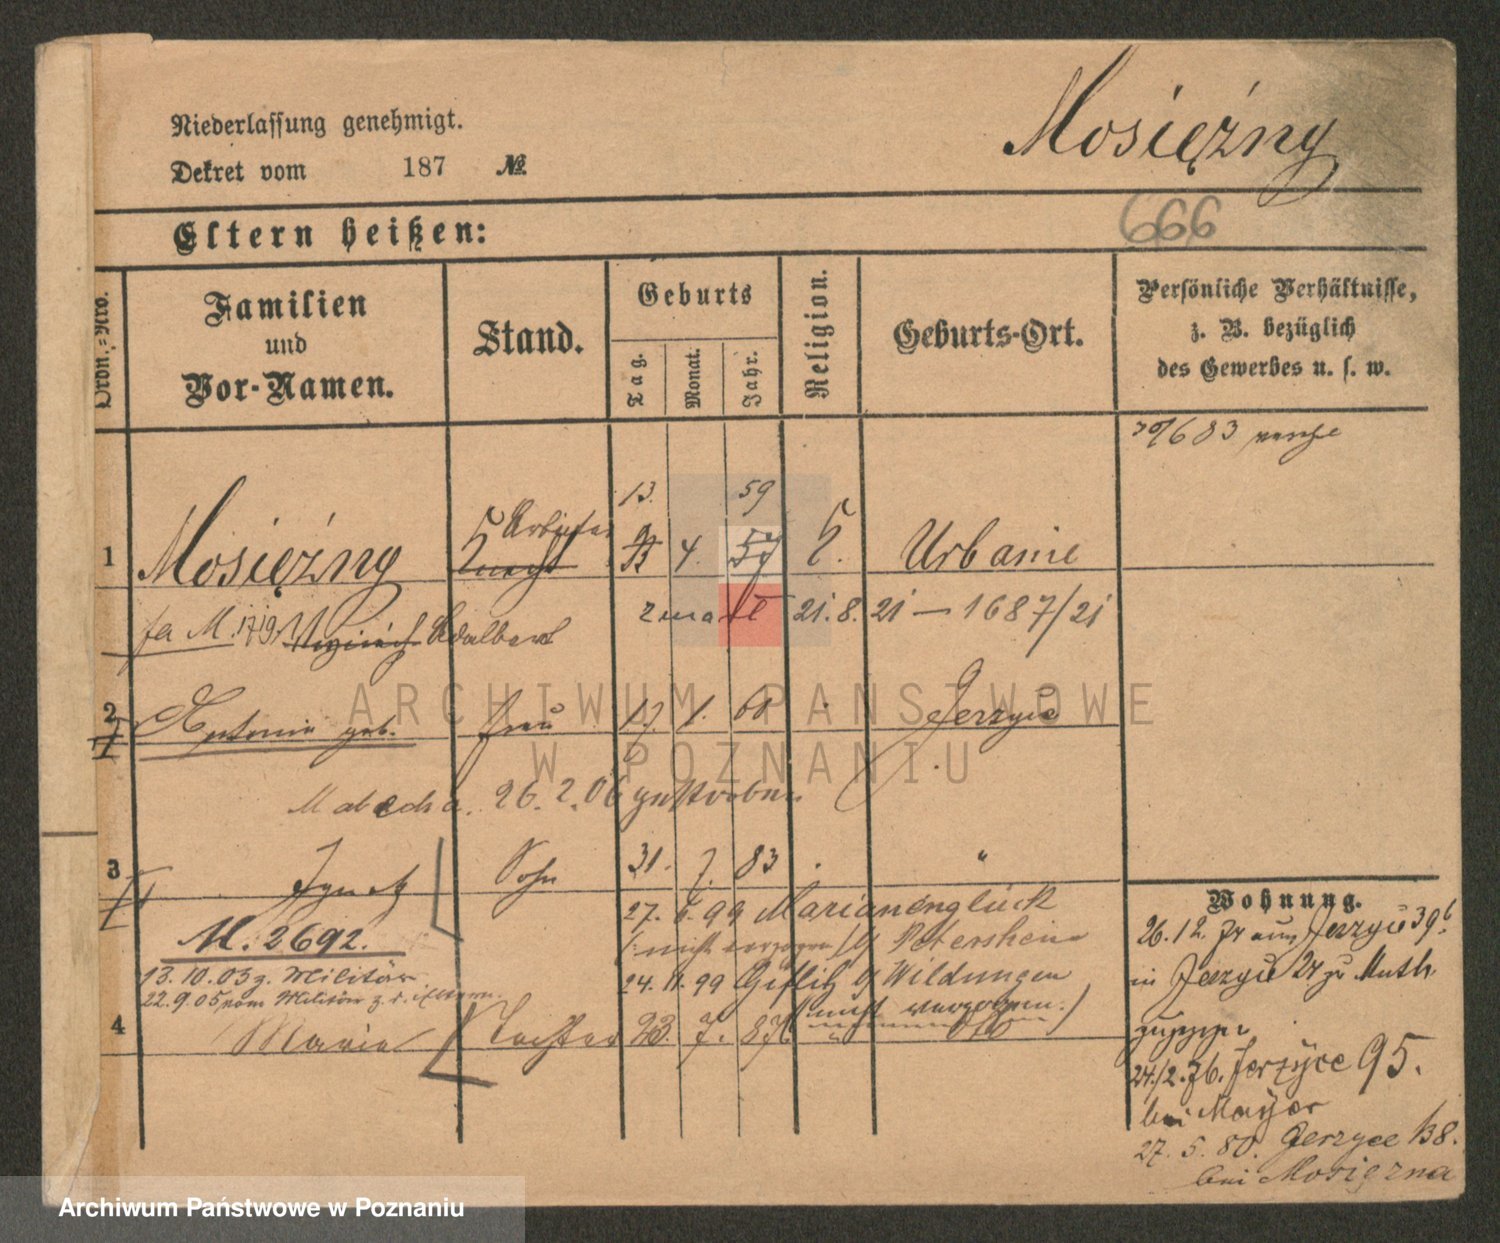 Mosiężny
Niederlassung genehmigt.
Dekret vom 187 №
666
Eltern heißen:
Ordn.=Nro.
Familien
und
Vor-Namen.
Stand.
Geburts
Tag. Monat. Jahr.
Religion.
Geburts-Ort.
Persönliche Verhältnisse,
z. B. bezüglich
des Gewerbes u. s. w.
13. 59
Arbeiter
1 Mosiężny Knecht 4. 57 Urbanie
fa M. 1719 Adalbert 21. 8. 21 — 1687/21
2 Antonie geb. Frau 17. 1. 61 Jerzyce
26. 2. 06 gestorben
3 Ignatz Sohn 31. 7. 83 "
27. 6. 99 Marianenglück
M. 2692. nicht verzogen Petershein
13. 10. 03 z. Militär 24. 11. 99 Wildungen
22. 9. 05 vom Militär z. d. Eltern nicht verzogen.
4 Marie Tochter 23. 7. 87
Wohnung.
26. 12. aus Jerzyce 39b
in Jerzyce 24 zu Muth.
24/2. 76. Jerzyce 95.
bei Mayer
27. 5. 80. Jerzyce 138.
bei Mosiężna
ARCHIWUM PAŃSTWOWE
W POZNANIU
Archiwum Państwowe w Poznaniu